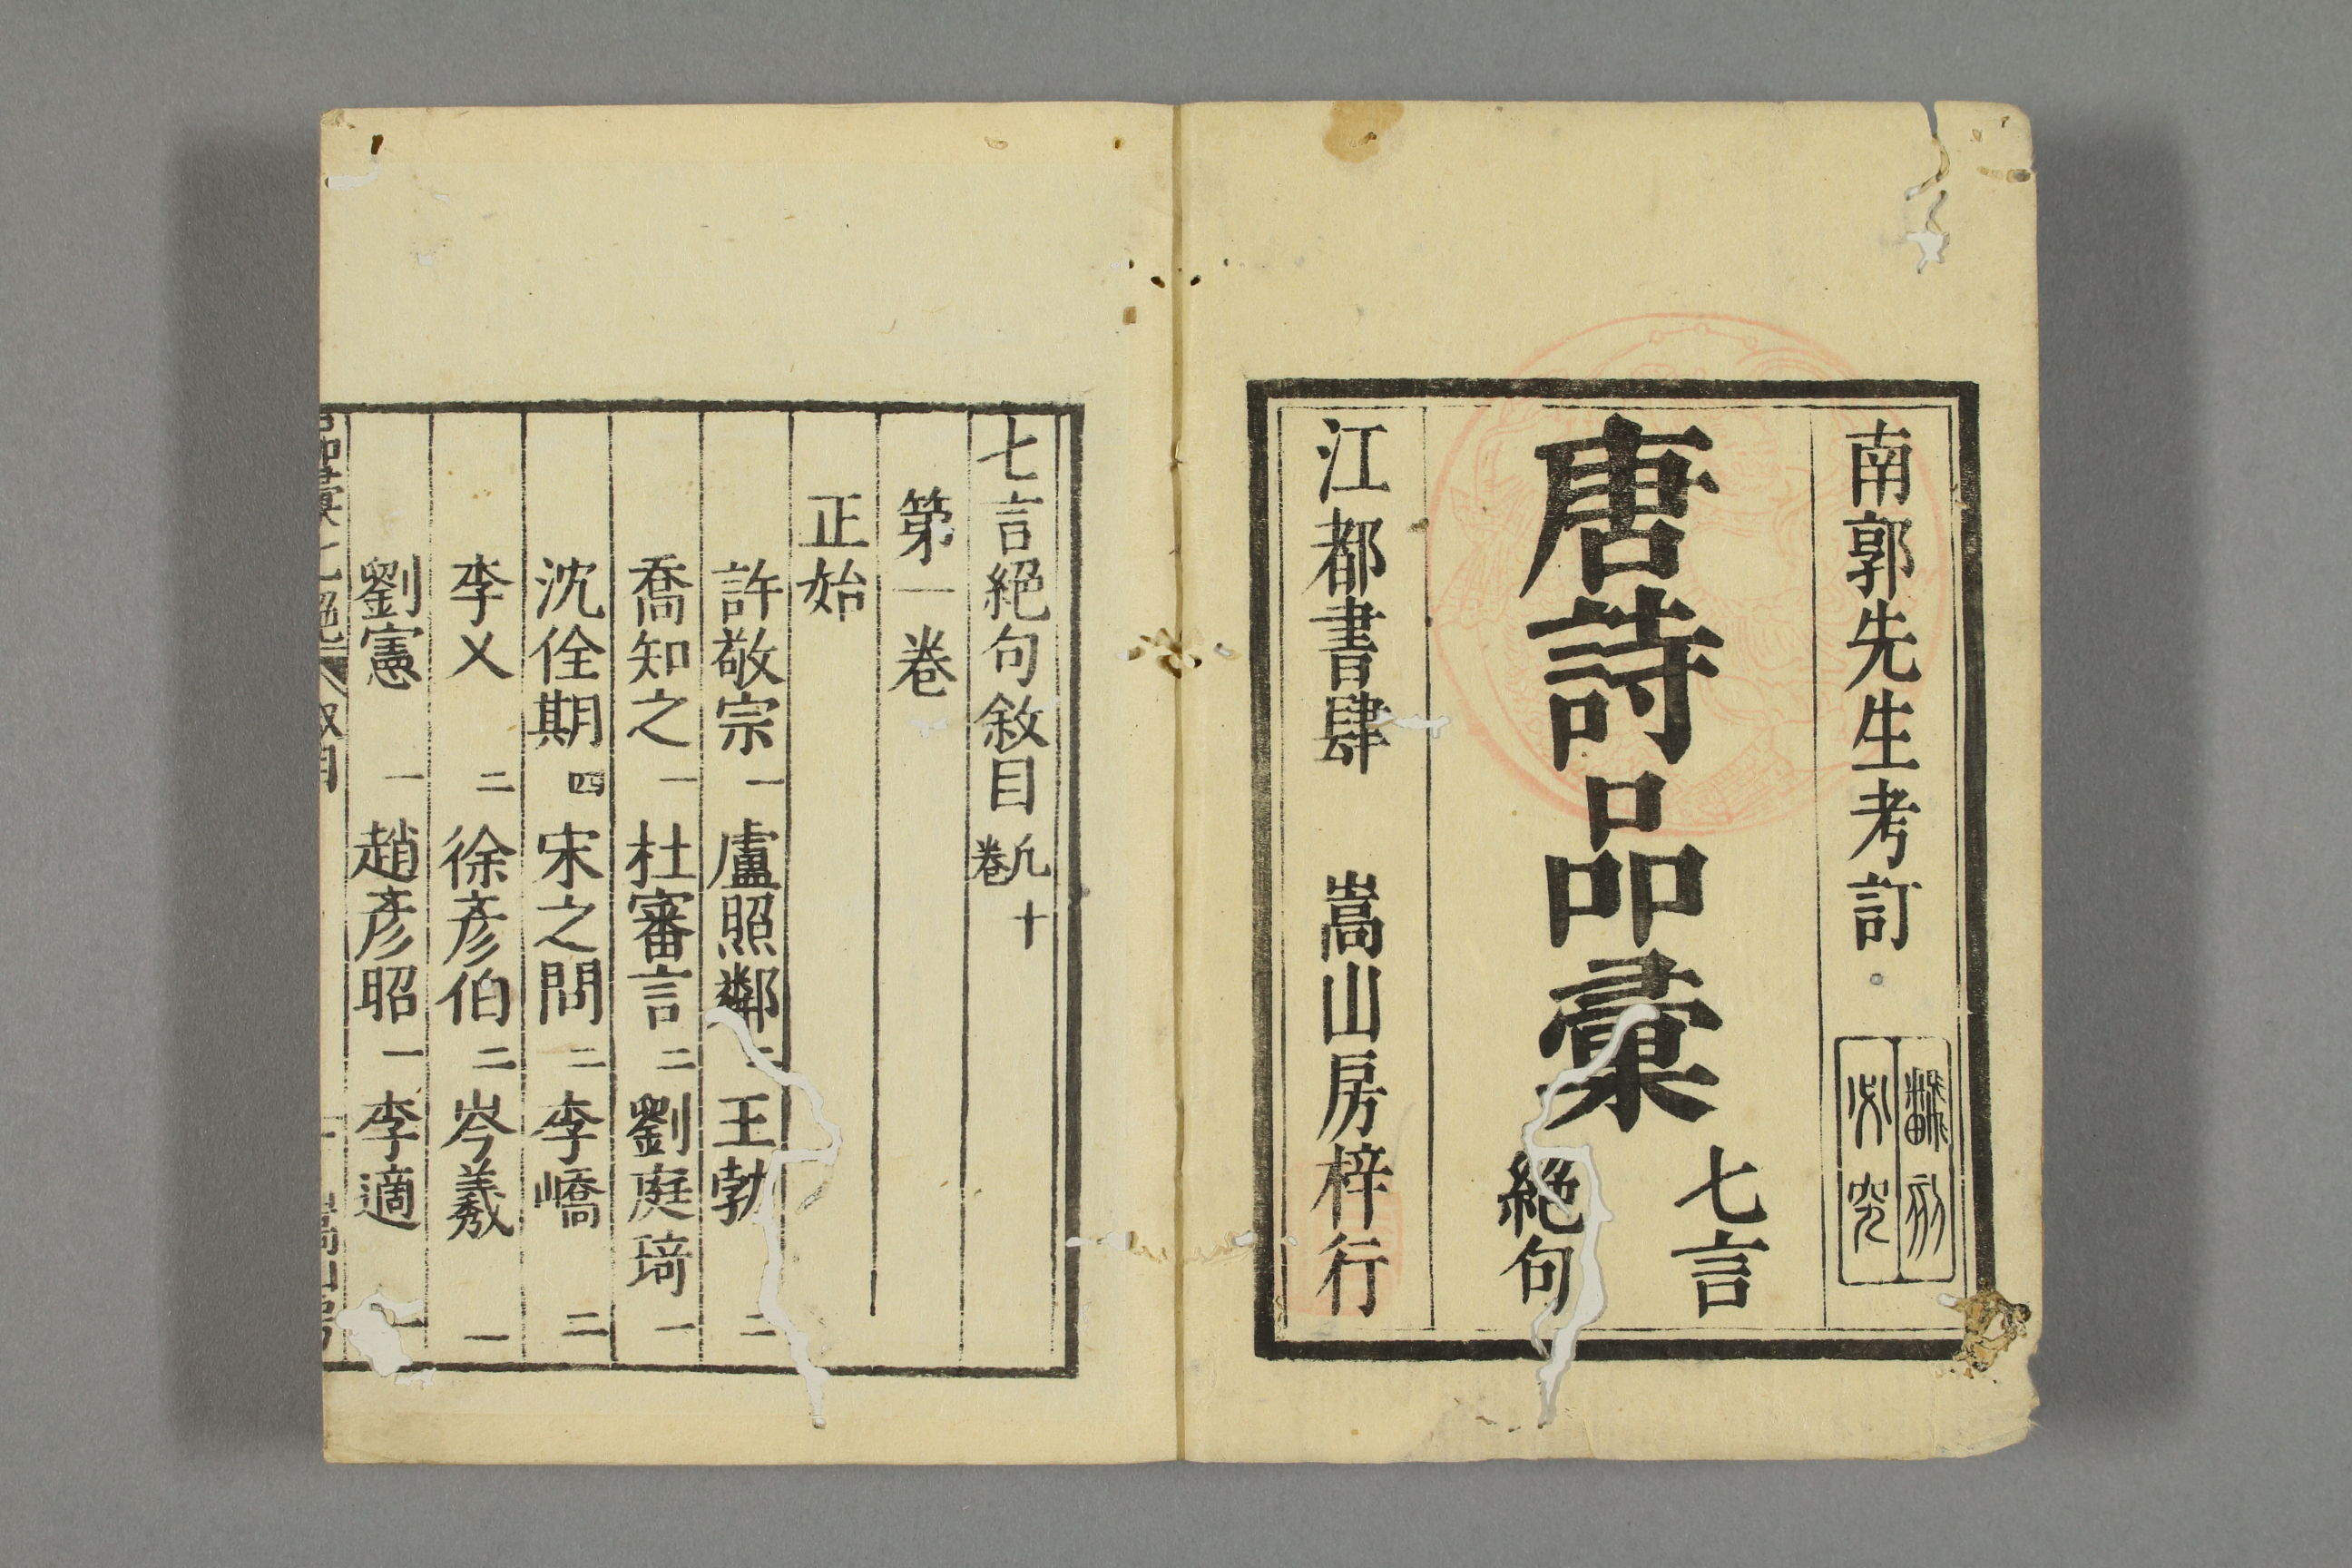 南郭先生考訂
翻刻
必究
唐詩品彙
七言
絕句
江都書肆 嵩山房梓行
七言絕句敘目凡十卷
第一卷
正始
許敬宗一 盧照鄰二 王勃二
喬知之一 杜審言二 劉庭琦一
沈佺期四 宋之問二 李嶠二
李乂二 徐彥伯二 岑羲一
劉憲一 趙彥昭一 李適一